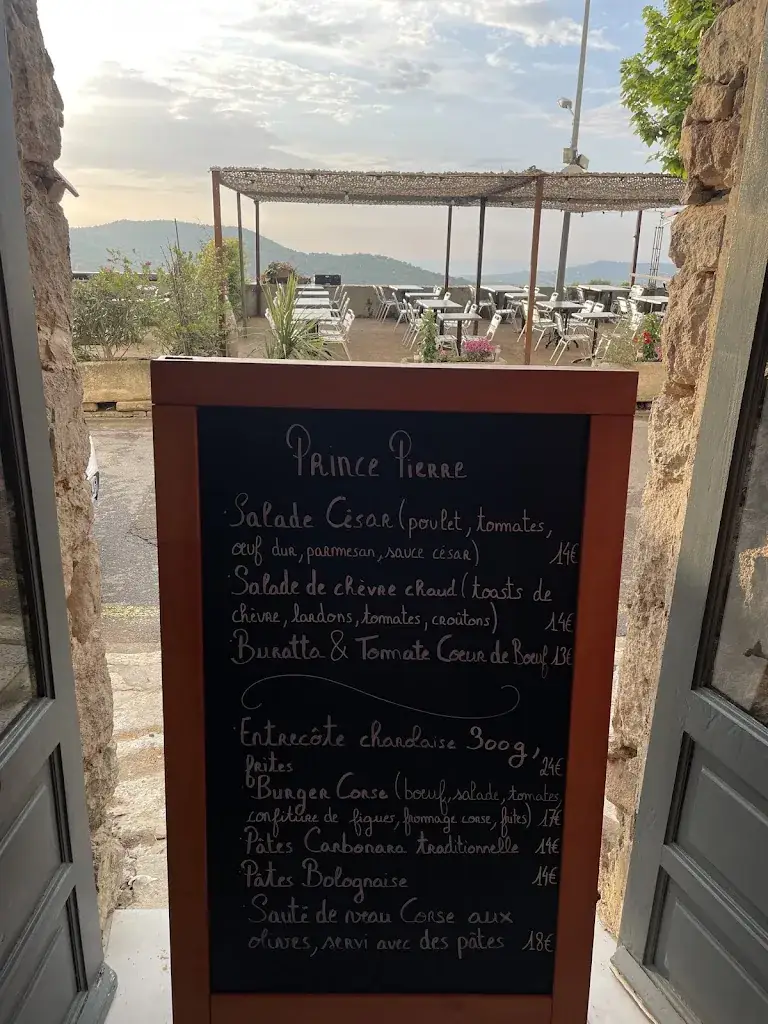 Prince Pierre
Salade César (poulet, tomates,
œuf dur, parmesan, sauce césar) 14€
Salade de chèvre chaud (toasts de
chèvre, lardons, tomates, croûtons) 14€
Buratta & Tomate Coeur de Boeuf 13€
Entrecôte charolaise 300g,
frites 24€
Burger Corse (bœuf, salade, tomates,
confiture de figues, fromage corse, frites) 17€
Pâtes Carbonara traditionnelle 14€
Pâtes Bolognaise 14€
Sauté de veau Corse aux
olives, servi avec des pâtes 18€